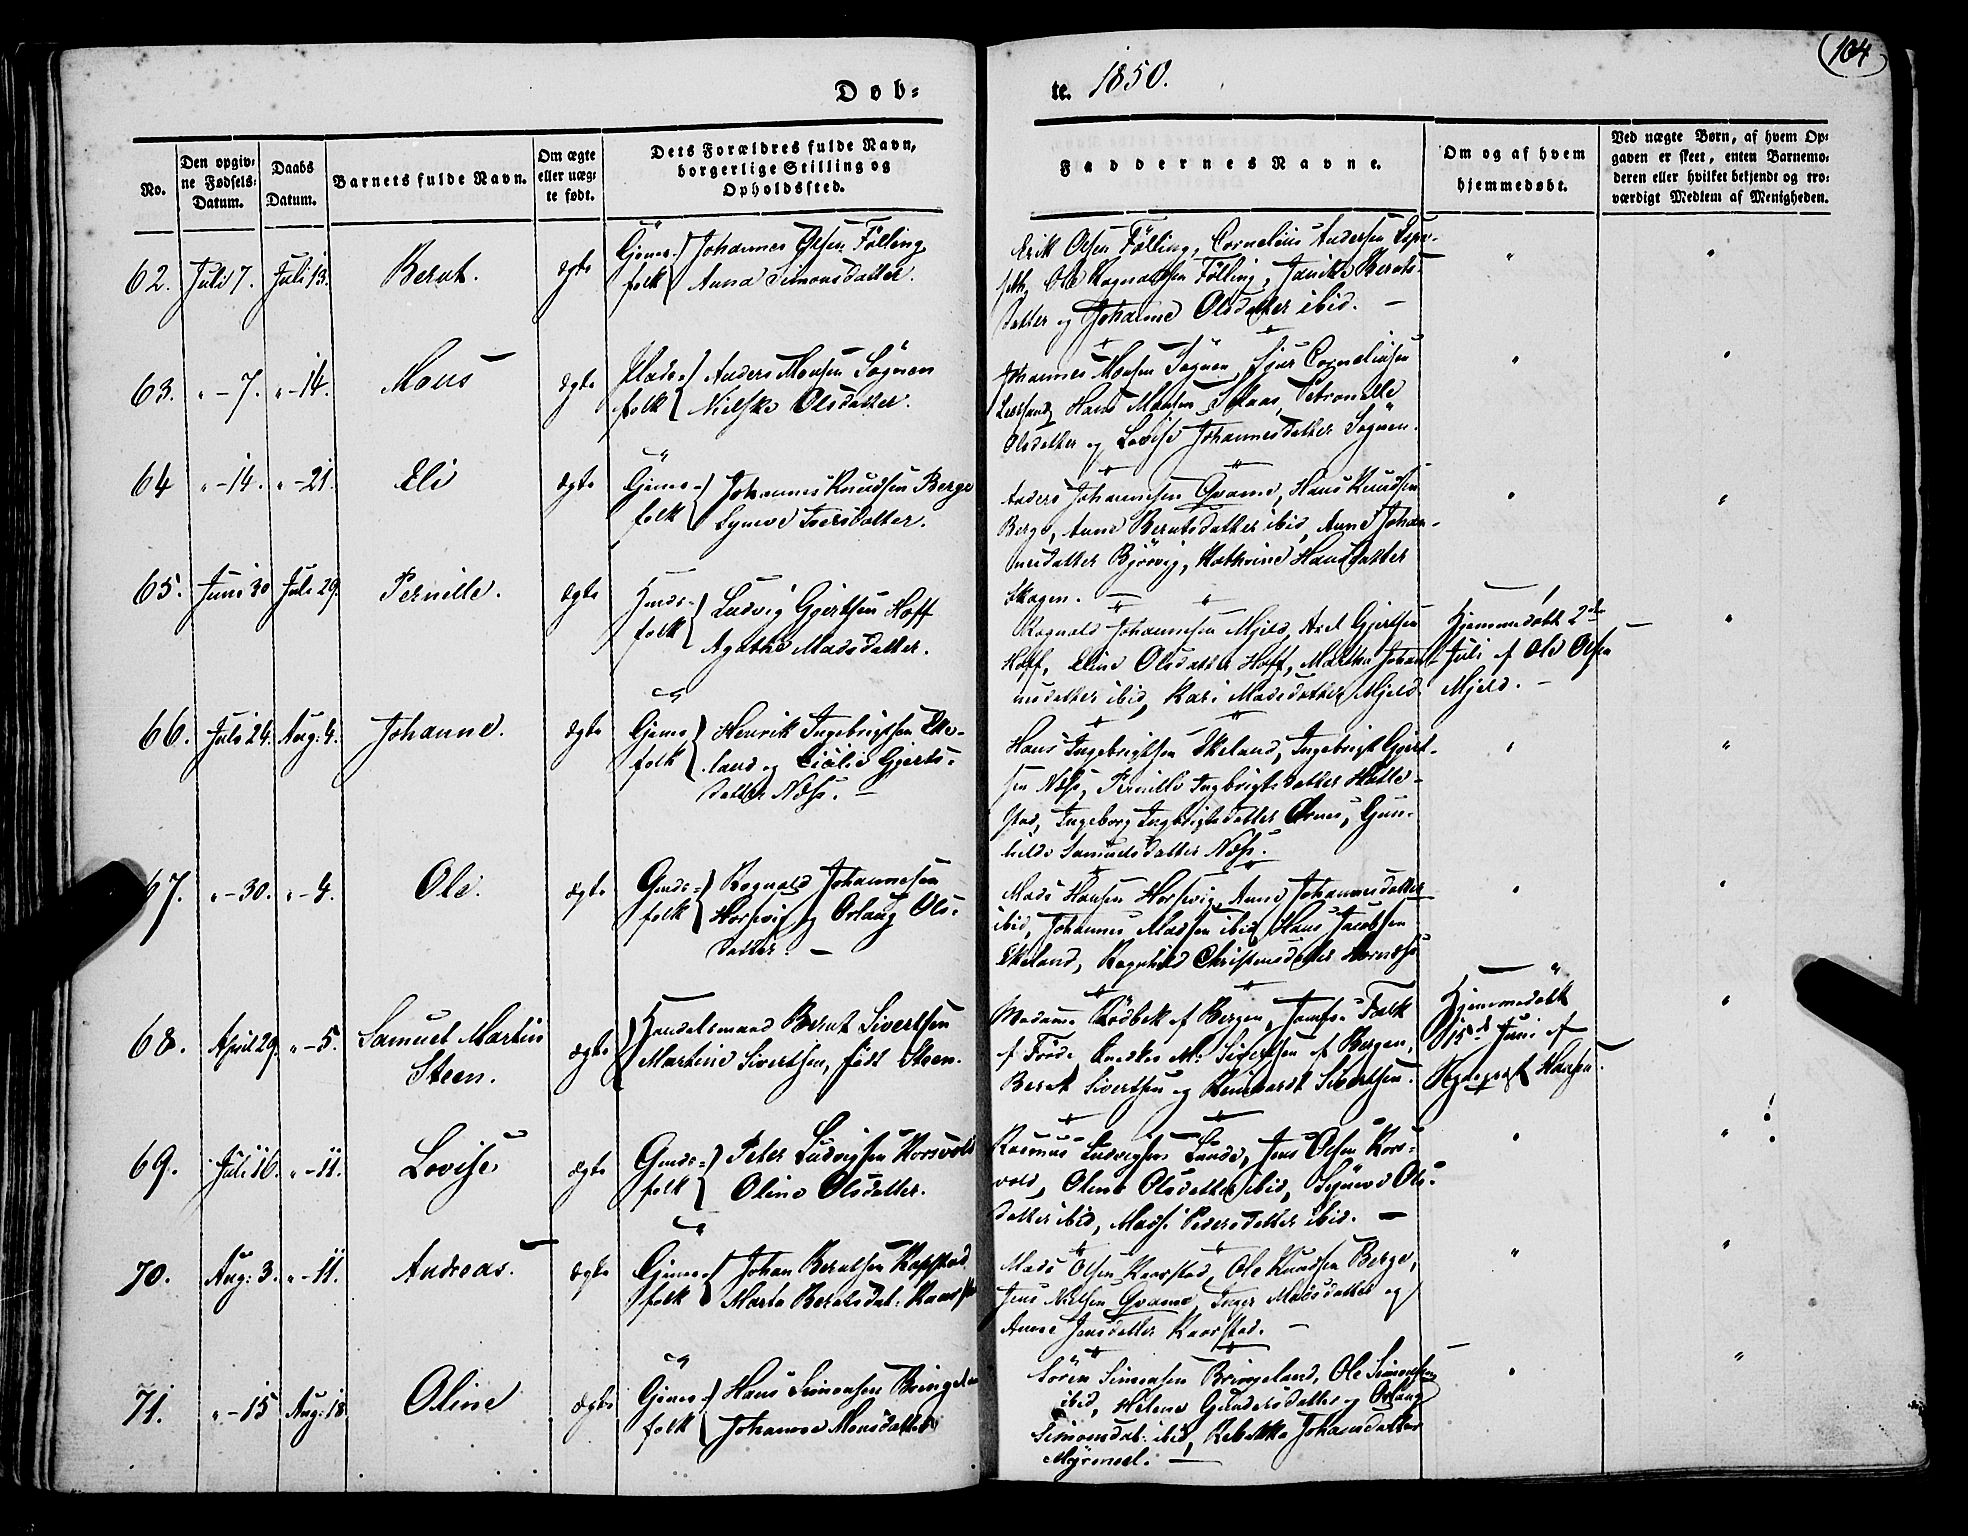 104
Døb-
te. 1850.
No.
Den opgiv-
ne Fødsels-
Datum.
Daabs
Datum.
Barnets fulde Navn.
Om ægte
eller uæg-
te født.
Dets Forældres fulde Navn,
borgerlige Stilling og
Opholdssted.
Faddernes Navne.
Om og af hvem
hjemmedøbt.
Ved uægte Børn, af hvem Op-
gaven er skeet, enten Barnemo-
deren eller hvilket bekjendt og tro-
værdigt Medlem af Menigheden.
62. Juli 7. Juli 13. Bernt. ægte
Gjens- Johannes Olsen Følling
folk Anna Simonsdatter.
Erik Olsen Følling, Cornelius Andersen Espe-
seth, Ole Rognaldsen Følling, Janikke Bernts-
datter og Johanne Olsdatter ibid. —
63. " - 7. " - 14. Mons ægte
Plads- Anders Monsen Sögnen
folk Nielske Olsdatter.
Johannes Monsen Sögnen, Sjur Corneliusen
Hans Monsen Petronelle
Olsdatter og Lovise Johannesdatter Sögnen.
64 " - 14. " - 21. Eli ægte
Gjens- Johannes Knudsen Berge
folk Synneve Iversdatter.
Anders Johannesen Qvame, Hans Knudsen
Berge, Anne Berntsdatter ibid, Anne Johan-
nesdatter Björvig, Kathrine Hansdatter
Skogen. —
65. Juni 30 Juli 29. Pernille. ægte
Huus-
folk Ludvig Gjertsen Hoff
Agathe Madsdatter.
Rognald Johannesen Mjeld, Axel Gjertsen
Hoff, Eline Olsdatter Hoff, Martha Johan-
nesdatter ibid, Kari Madsdatter Mjeld.
Hjemmedöbt 2de
Juli af Ole Olsen
Mjeld. —
66. Juli 24. Aug: 4. Johanne. ægte
Gjens Henrik Ingebrigtsen Eke-
folk land og Cicilie Gjerts-
datter Næss. —
Hans Ingebrigtsen Ekeland, Ingebrigt Gjert-
sen Næss, Pernille Ingbrigtsdatter Hatle-
stad, Ingeborg Ingbrigtsdatter Arnes, Gun-
hilde Samuelsdatter Næss.
67. " - 30. " - 4. Ole. ægte
Gmds- Rognald Johannesen
folk Horsevig og Orlaug Ols-
datter. —
Mads Hansen Horsevig, Anne Johannesdatter
ibid, Johannes Madsen ibid, Hans Jacobsen
Ekeland, Ragnhild Christensdatter Hornæss.
68. April 29. " - 5. Samuel Martin
Steen. ægte
Handelsmand Bernt Sivertsen
Martine Sivertsen, född Steen.
Madame Rödbek af Bergen, Jomfru Falk
af M: Sivertsen af Bergen,
Bernt Sivertsen og Reinhardt Sivertsen.
Hjemmedöbt
15de Juni af
Hansen.
69. Juli 16. " - 11. Lovise ægte
Gmds- Peter Ludvigsen Korsvold
folk Oline Olsdatter.
Rasmus Ludvigsen Lunde, Jens Olsen Kors-
vold, Oline Olsdatter ibid, Synneve Ols-
datter ibid, Mads Pedersdatter ibid. —
70. Aug: 3. " - 11. Andreas. ægte
Gjens- Johan Berntsen Kopstad
folk Marta Berntsdat: Kaarstad
Mads Olsen Kaarstad, Ole Knudsen Berge,
Jens Nielsen Qvame, Inger Madsdatter og
Anne Jensdatter Kaarstad. —
71. " - 15 Aug: 18 Oline ægte
Gjens- Hans Simonsen Bringeland
folk Johanne Monsdatter
Sören Simonsen Bringeland, Ole Simonsen
ibid, Helene Gundersdatter og Orlaug
Simonsdat: ibid, Rebekka Johansdatter
Myrmel. —